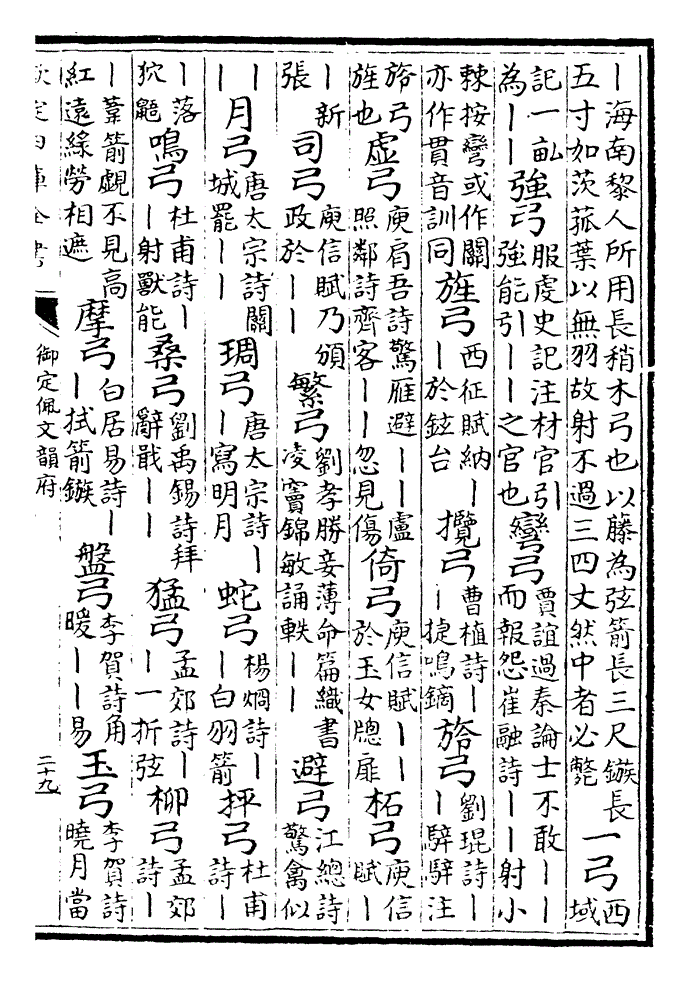 ｜海南黎人所用長稍木弓也以藤為弦箭長三尺鏃長五寸如茨菰葉以無羽故射不過三四丈然中者必斃一弓西域
記一畝為｜｜強弓服虔史記注材官引強能引｜｜之官也彎弓賈誼過秦論士不敢｜｜而報怨崔融詩｜｜射小
棘按彎或作關亦作貫音訓同旌弓西征賦納｜｜於鉉台攬弓曹植詩｜｜捷鳴鏑旍弓劉琨詩｜｜騂騂注
旍弓旌也虛弓庾肩吾詩驚雁避｜｜盧照鄰詩齊客｜｜忽見傷倚弓庾信賦｜｜於玉女牕扉柘弓庾信賦｜
｜新張司弓庾信賦乃頒政於｜｜繁弓劉孝勝妾薄命篇織書凌竇錦敏誦軼｜｜避弓江總詩驚禽似
｜｜月弓唐太宗詩關城罷｜｜琱弓唐太宗詩｜｜寫明月蛇弓楊烱詩｜｜白羽箭抨弓杜甫詩｜
｜落狖鼯鳴弓杜甫詩｜｜射獸能桑弓劉禹錫詩拜辭戢｜｜猛弓孟郊詩｜｜一折弦柳弓孟郊詩｜
｜葦箭覷不見高紅遠綠勞相遮摩弓白居易詩｜｜拭箭鏃盤弓李賀詩角暖｜｜易玉弓李賀詩曉月當
欽定四庫全書
御定佩文韻府
二十九